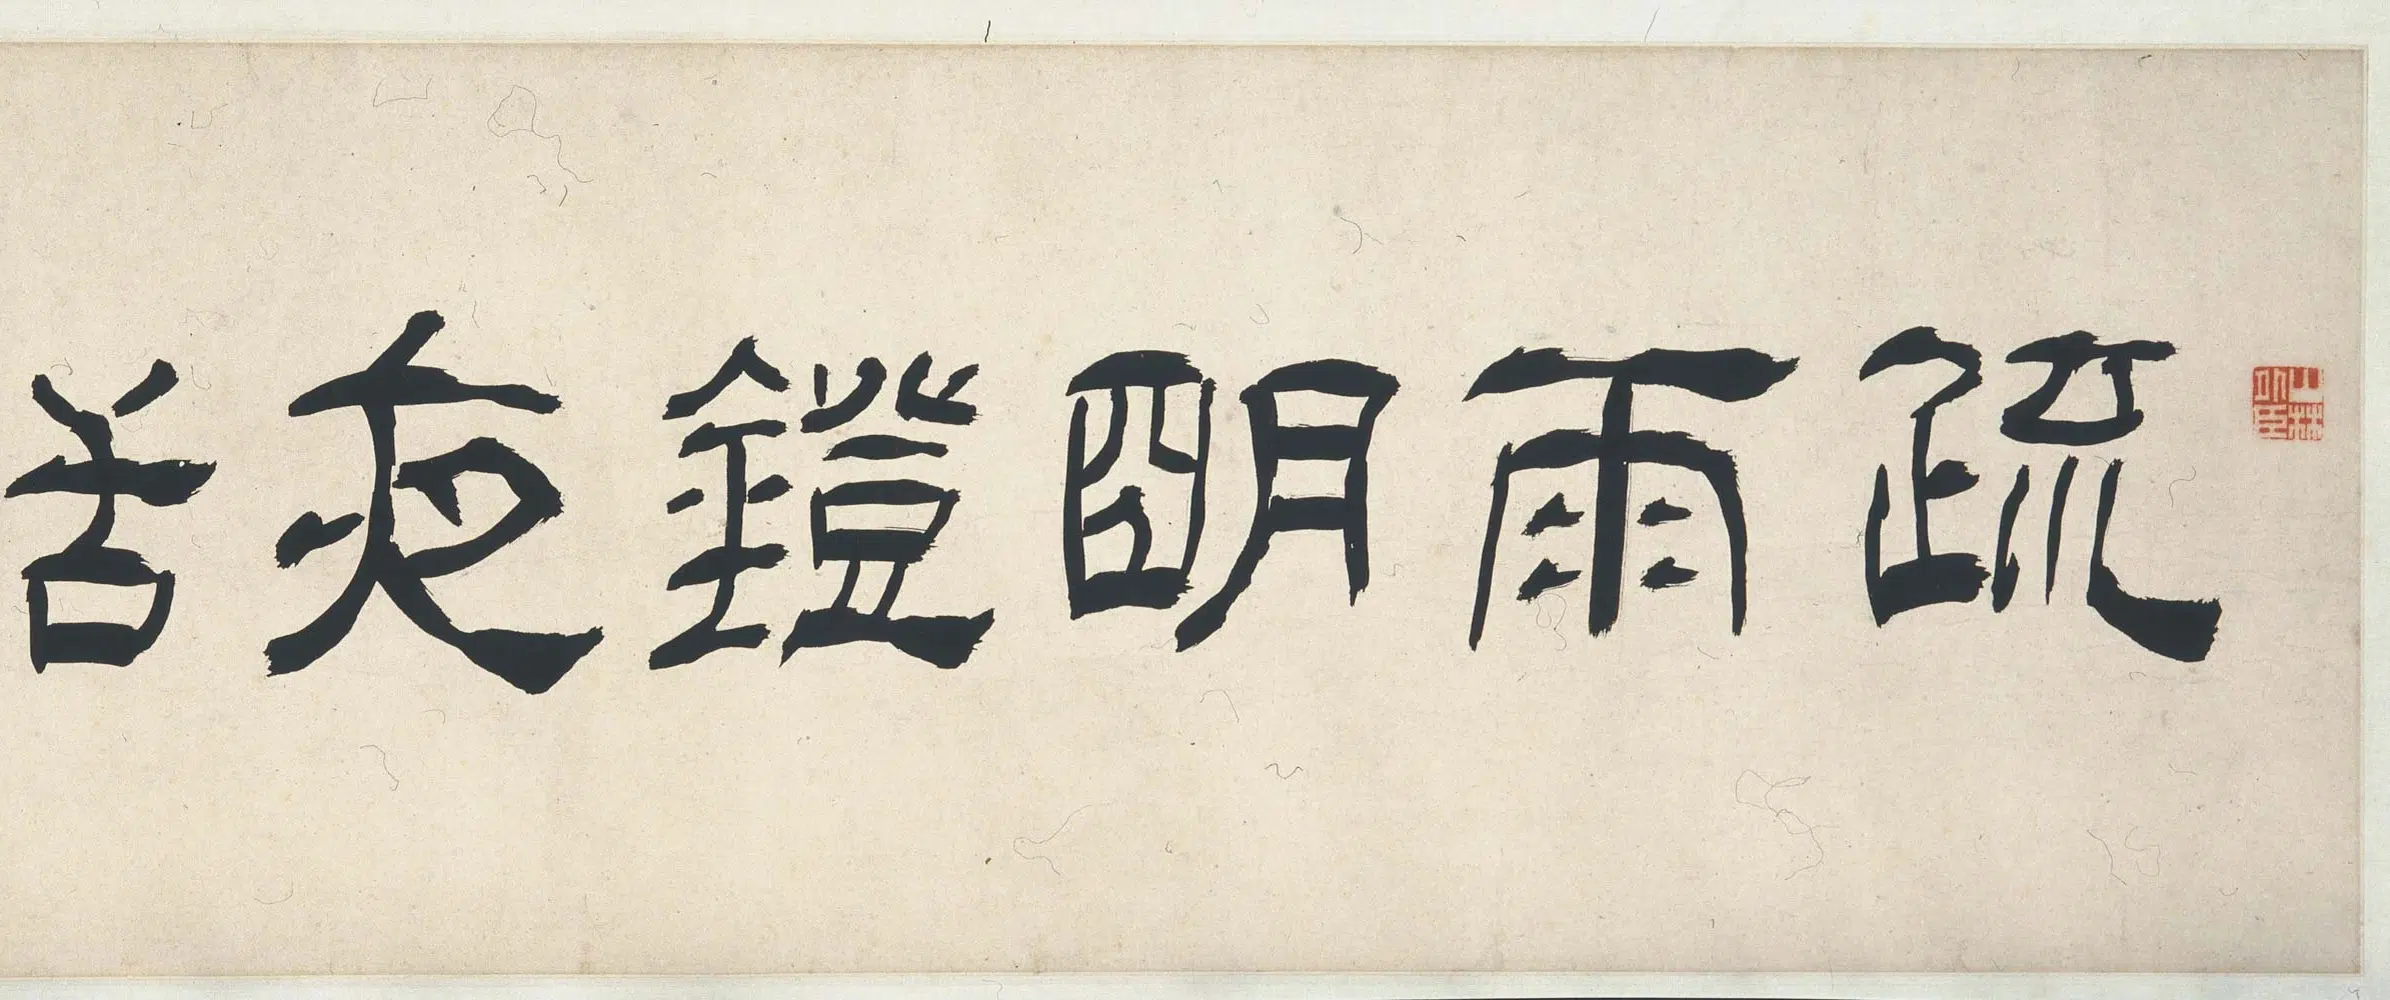 疏雨朙鐙夜話